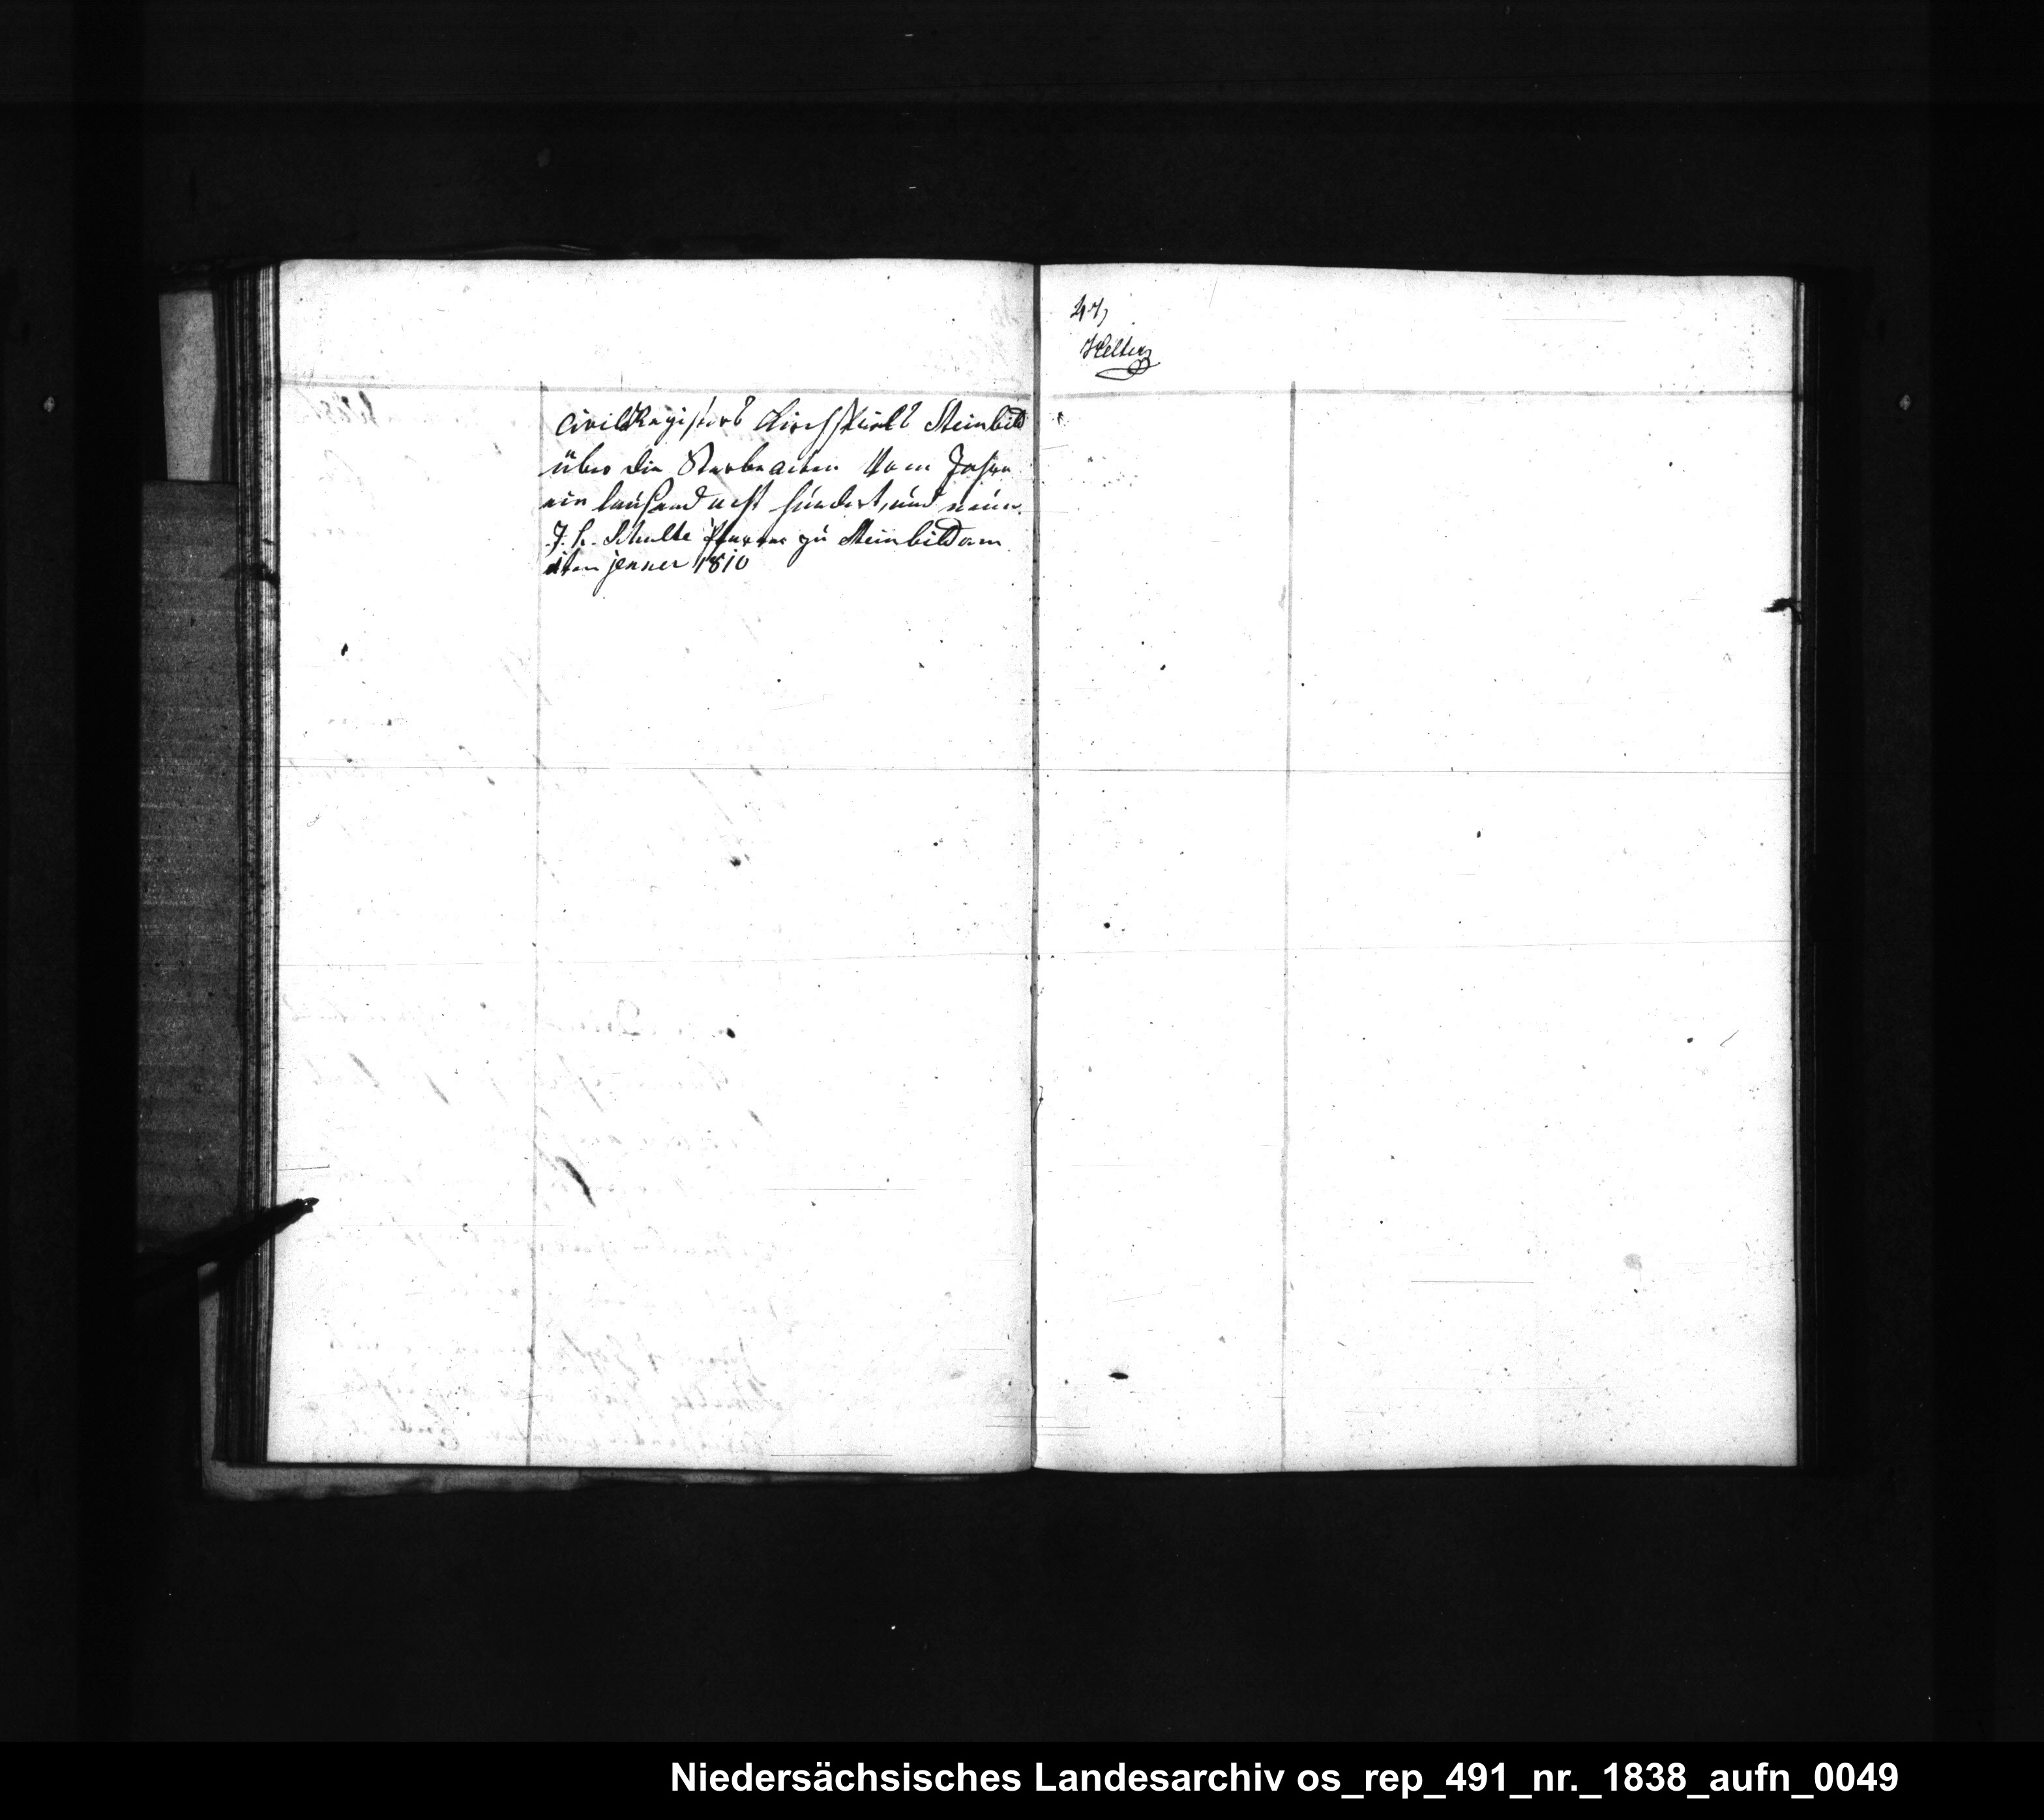 civil Registers Kirchspiels Steinbild
über die Sterbeacten Vom Jahre
ein tausend acht hundert, und neun.
J. H. Schulte Pfarrer zu Steinbild am
1ten jenner 1810
47,
Niedersächsisches Landesarchiv os_rep_491_nr._1838_aufn_0049